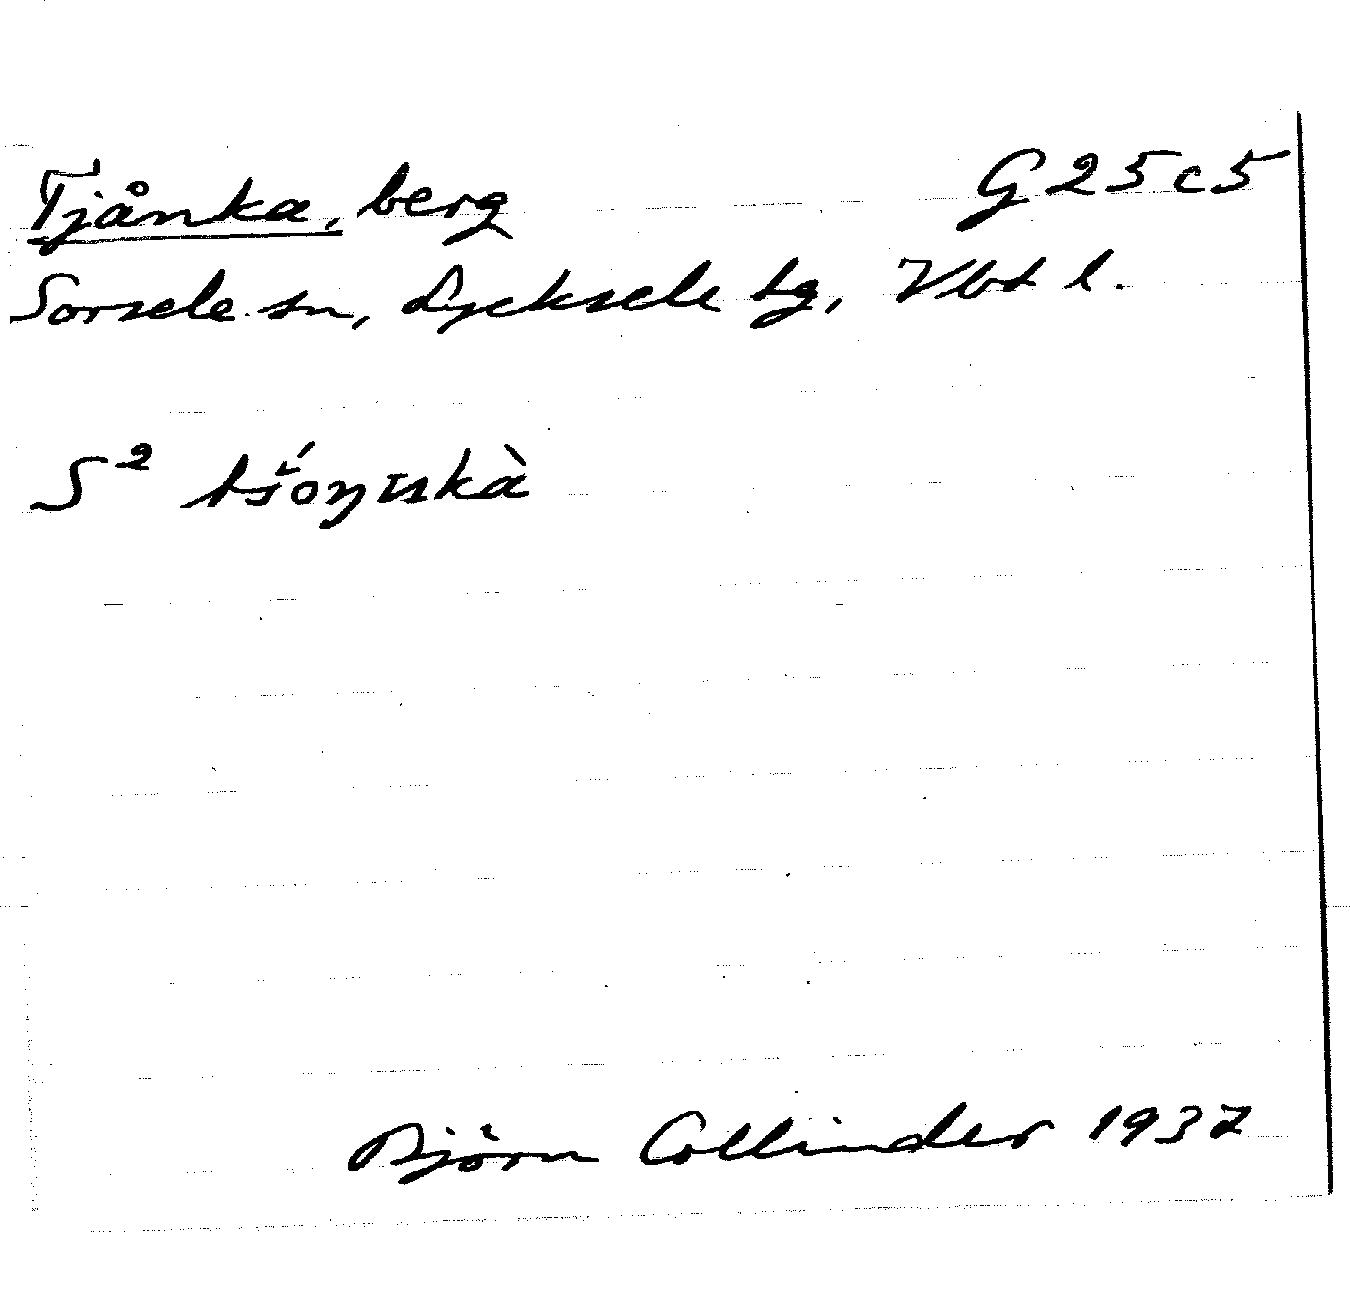 Tjånka, berg G25c5
Sorsele sn, Lycksele tg, Vbt l.
S²
Björn Collinder 1937